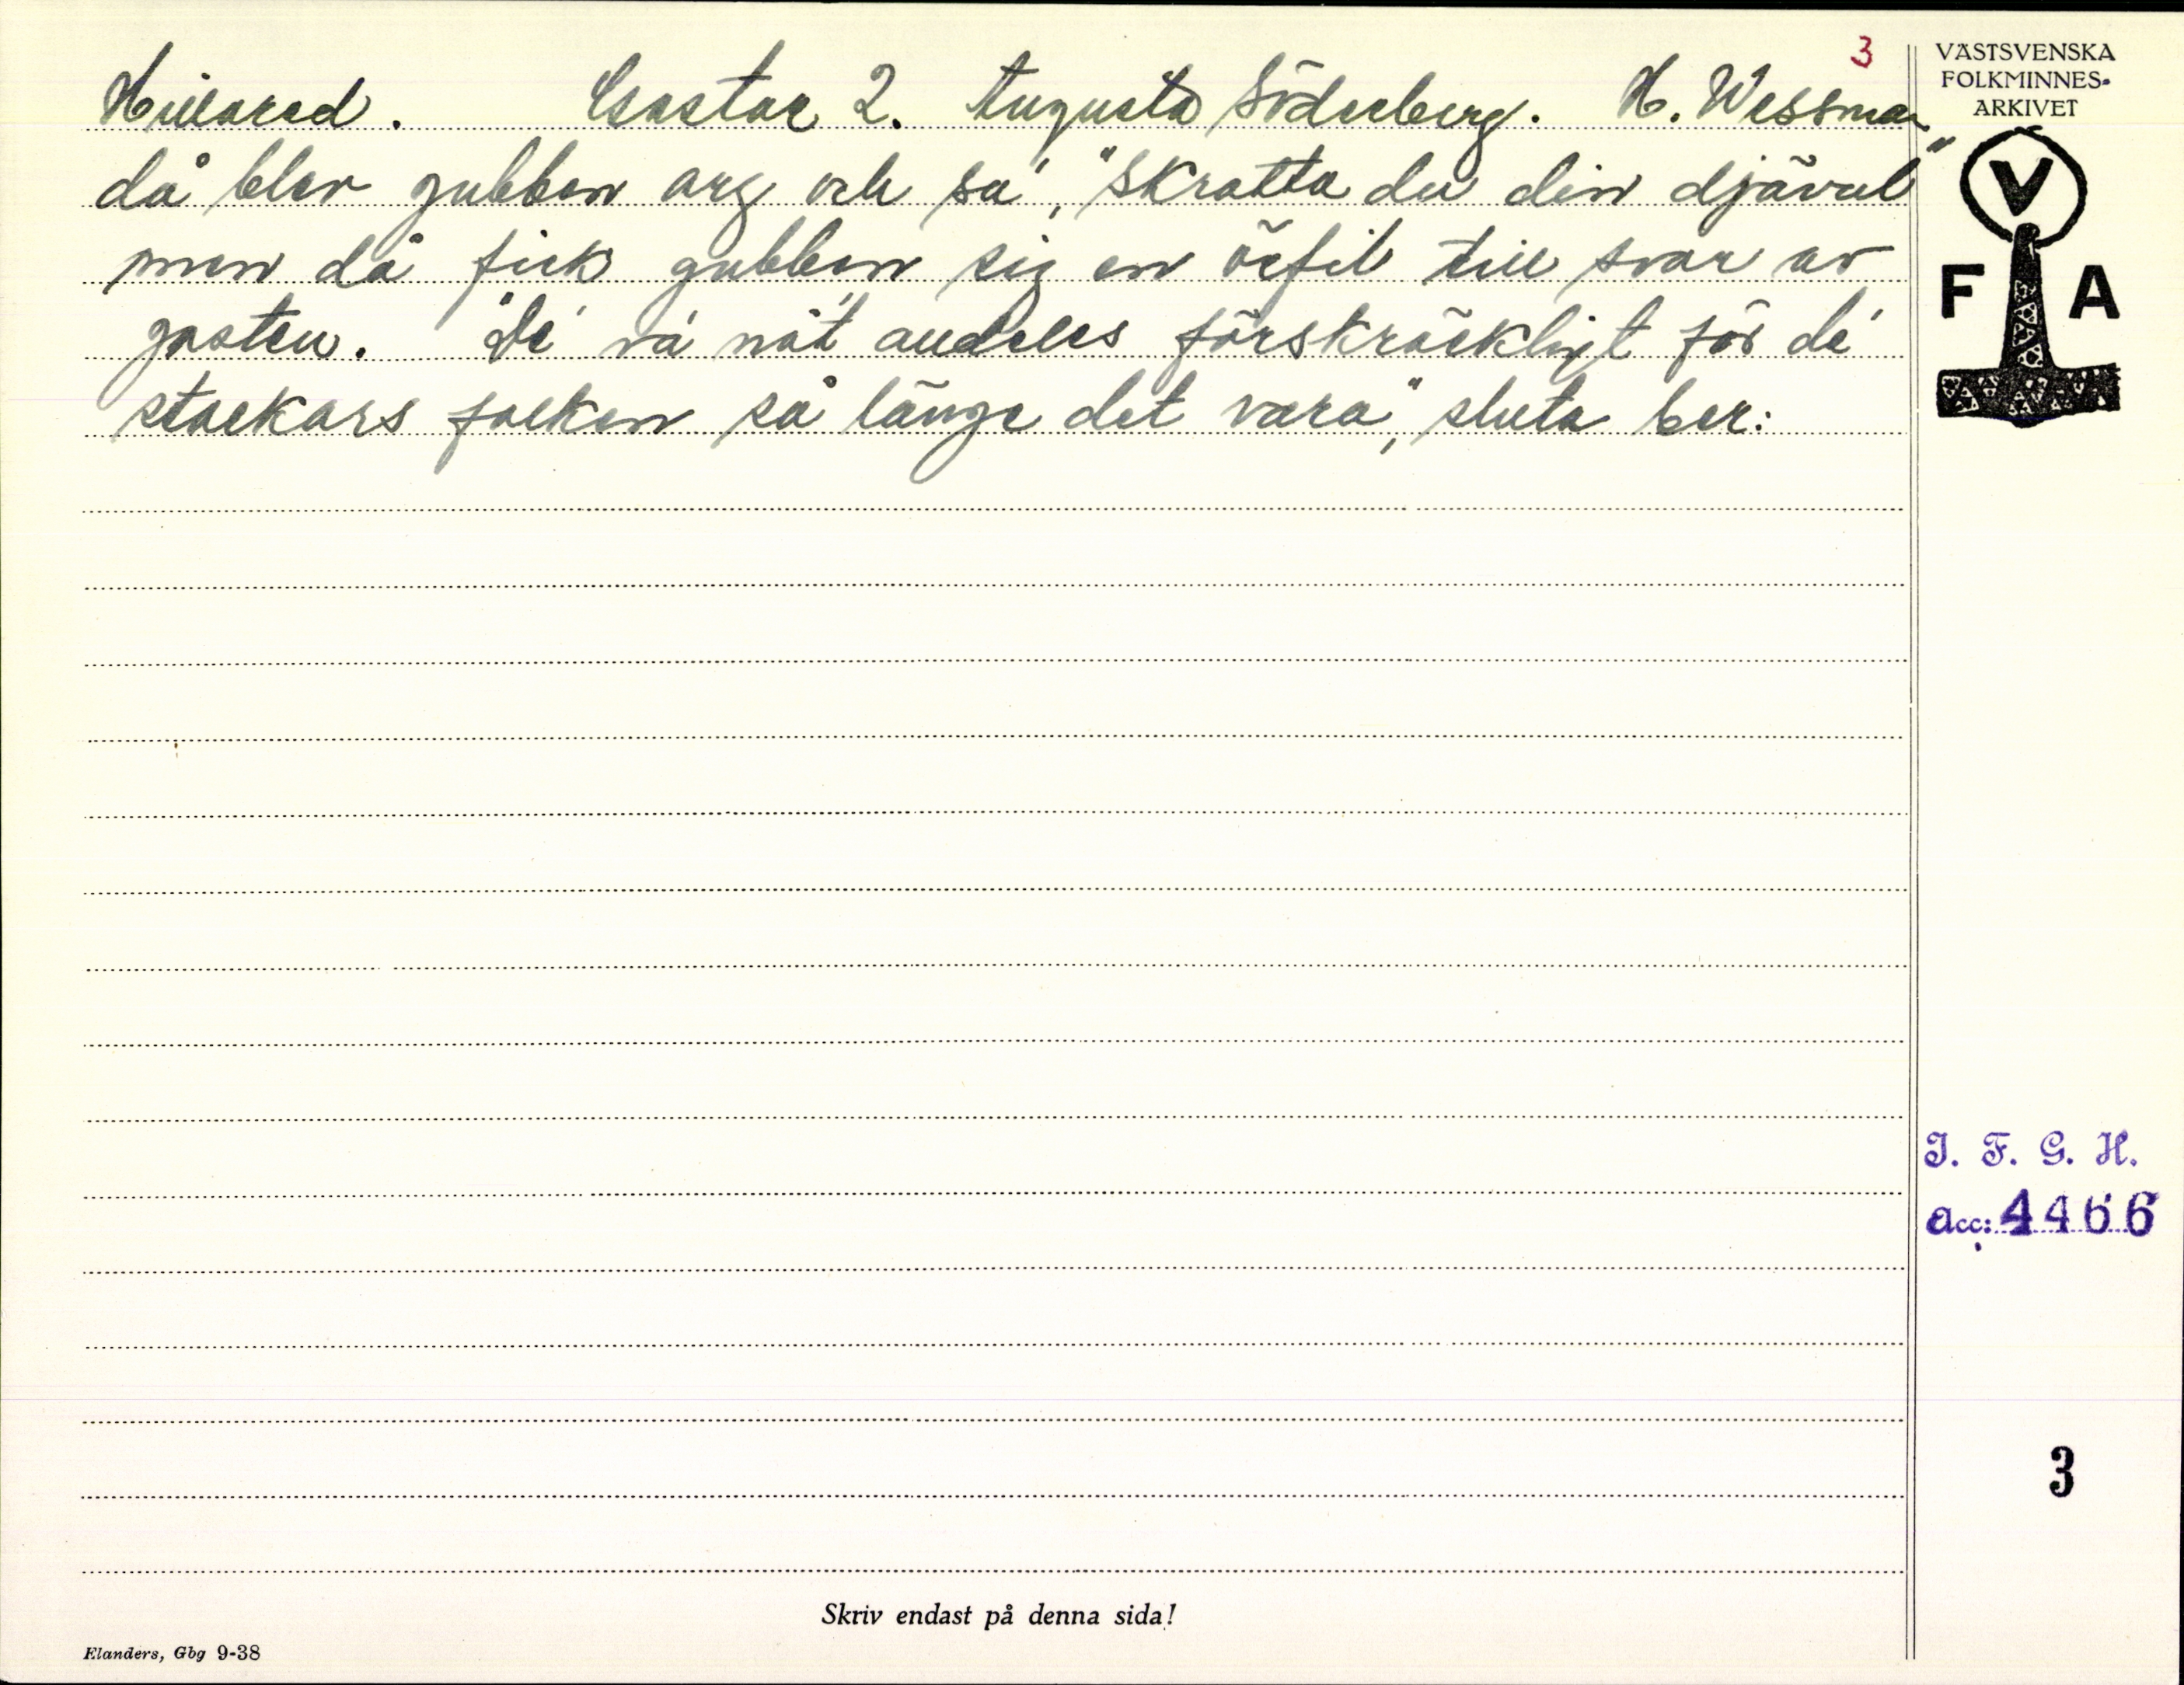 3
VÄSTSVENSKA
FOLKMINNES-
ARKIVET
Hillared. Gastar 2. Augusta Söderberg. H. Wessman
då blev gubben arg och sa', "Skratta du din djävul"
men då fick gubben sig en örfil till svar av
gasten. "De' va' nåt' audeles förskräckligt för de'
stackars folken så länge det vara", sluta ber:
V
F A
I. F. G. H.
Acc: 4466
3
Skriv endast på denna sida!
Elanders, Gbg 9-38